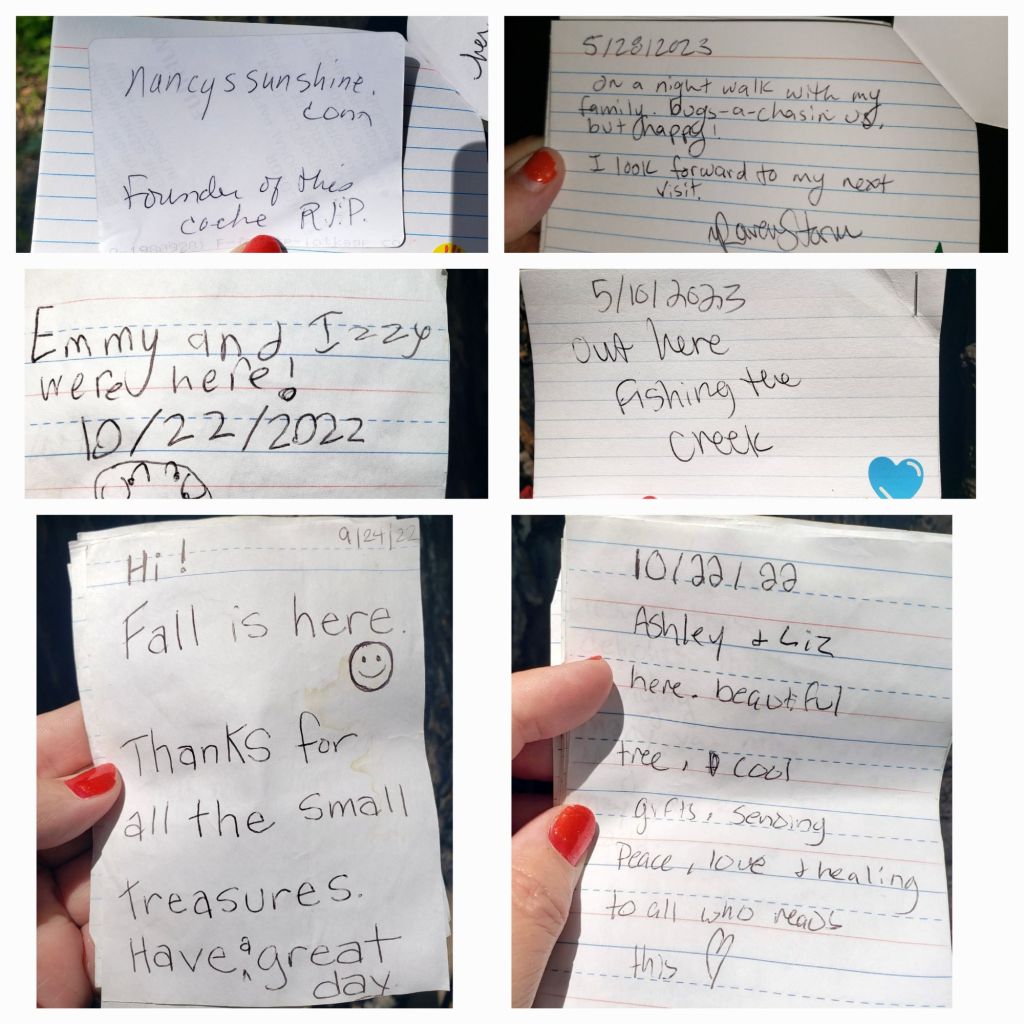 nancyssunshine.
com
Founder of this
cache R.I.P.
her
5/28/2023
On a night walk with my
family. Bugs-a-chasin us,
but happy!
I look forward to my next
visit.
Emmy and Izzy
were here!
10/22/2022
5/10/2023
out here
Fishing the
creek
9/24/22
Hi!
Fall is here.
Thanks for
all the small
treasures.
Have a great
day.
10/22/22
Ashley & Liz
here. beautiful
tree, cool
gifts, sending
Peace, love & healing
to all who reads
this